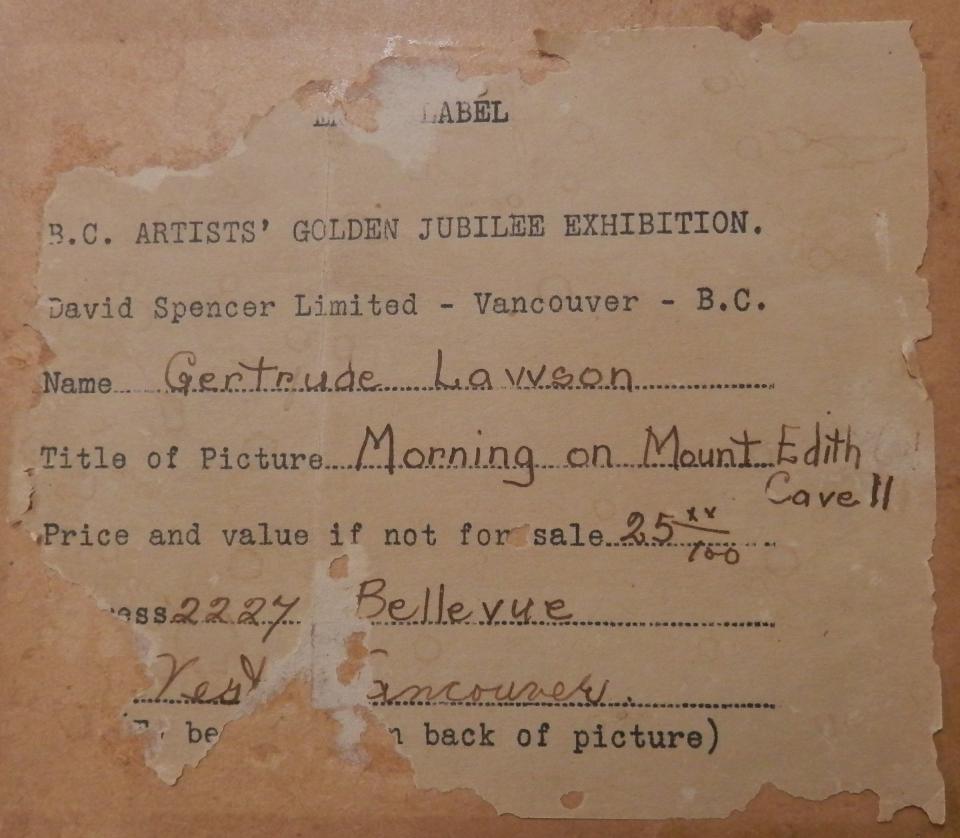 LABEL
B.C. ARTISTS' GOLDEN JUBILEE EXHIBITION.
David Spencer Limited - Vancouver - B.C.
Name Gertrude Lawson
Title of Picture Morning on Mount Edith
Cavell
Price and value if not for sale 25 xx/100
2227 Bellevue
West Vancouver.
be back of picture)